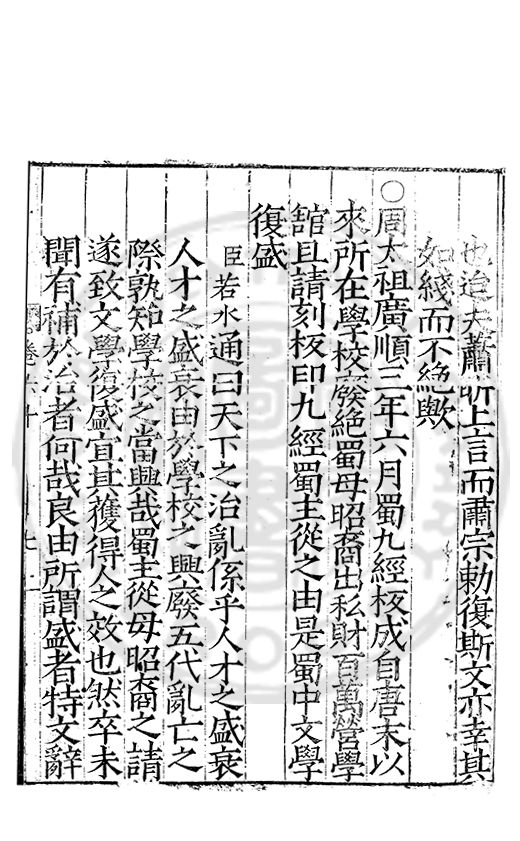 也迨夫蕭昕上言而肅宗勅復斯文亦幸其
如綫而不絶歟
○周太祖廣順三年六月蜀九經板成自唐末以
來所在學校廢絶蜀毋昭裔出私財百萬營學
舘且請刻板印九經蜀主從之由是蜀中文學
復盛
臣若水通曰天下之治亂係乎人才之盛衰
人才之盛衰由於學校之興廢五代亂亡之
際孰知學校之當興哉蜀主從毋昭裔之請
遂致文學復盛宜其獲得人之效也然卒未
聞有補於治者何哉良由所謂盛者特文辭